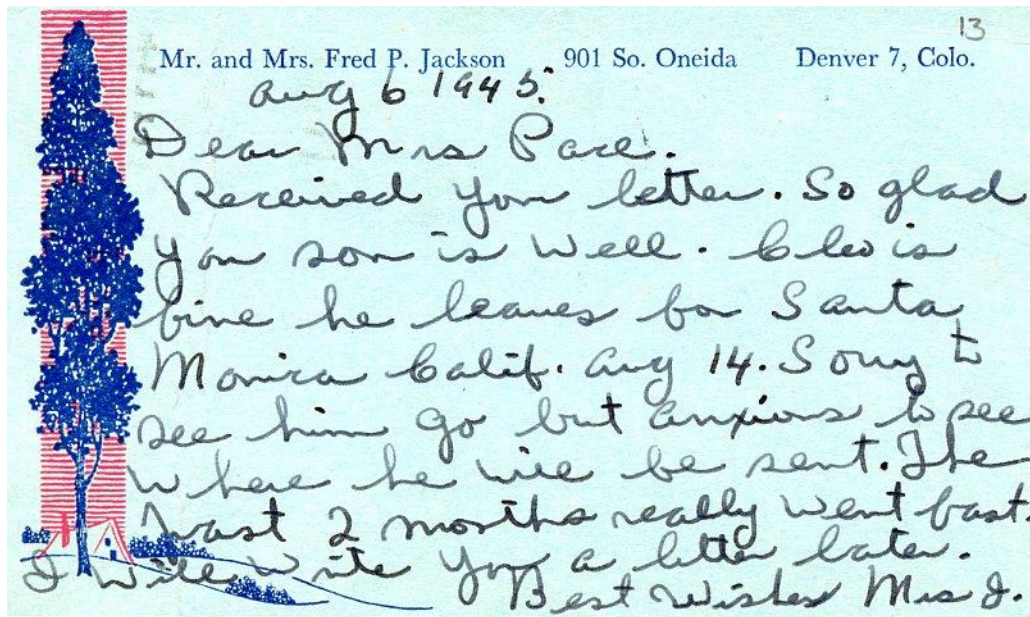 13
Mr. and Mrs. Fred P. Jackson 901 So. Oneida Denver 7, Colo.
Aug 6 1945.
Dear Mrs Pace.
Received your letter. So glad
you son is well. Cleo is
fine he leaves for Santa
Monica Calif. Aug 14. Sorry to
see him go but anxious to see
where he will be sent. The
last 2 months really went fast.
I will write you a letter later.
Best Wishes Mrs J.